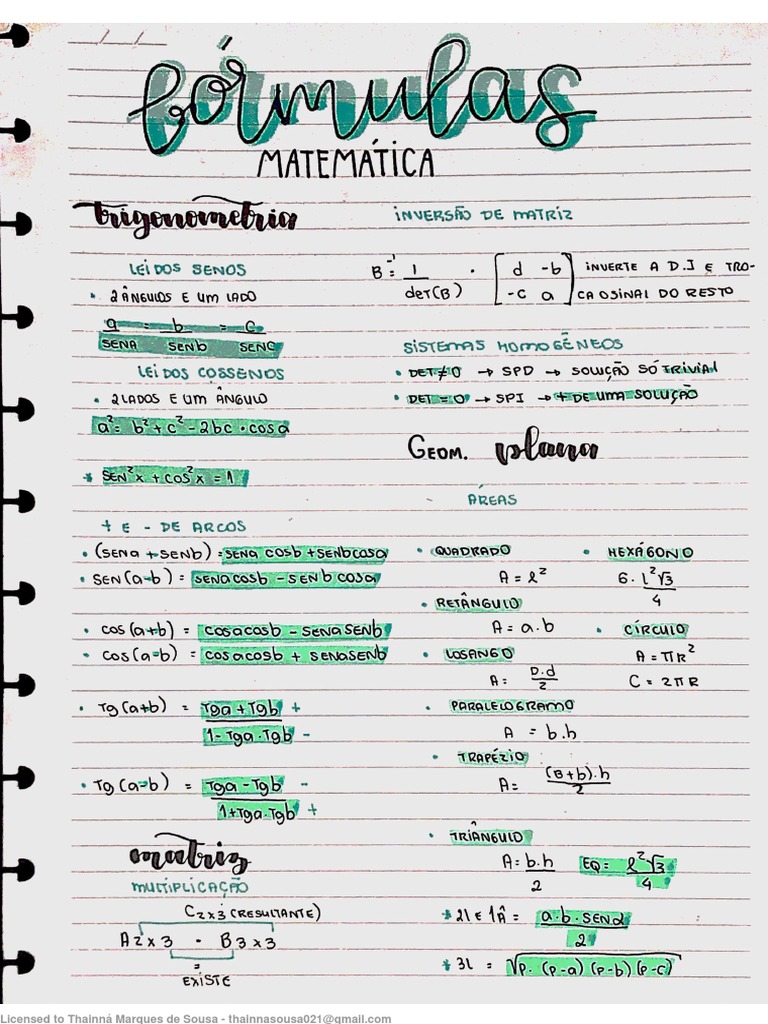 fórmulas
MATEMÁTICA
trigonometria
LEI DOS SENOS
• 2 ÂNGULOS E UM LADO
a = b = c
SENA SENb SENC
LEI DOS COSSENOS
• 2 LADOS E UM ÂNGULO
a² = b² + c² - 2bc · cosa
* SEN²x + cos²x = 1
+ E - DE ARCOS
• (SENa + SENb) = SENa cosb + SENb cosa
• SEN(a-b) = SENa cosb - SENb cosa
• cos(a+b) = cosa cosb - SENa SENb
• cos(a-b) = cosa cosb + SENa SENb
• Tg(a+b) = Tga + Tgb +
1 - Tga · Tgb -
• Tg(a-b) = Tga - Tgb -
1 + Tga · Tgb +
matriz
MULTIPLICAÇÃO
C2x3 (RESULTANTE)
A2x3 · B3x3
=
EXISTE
INVERSÃO DE MATRIZ
B⁻¹ = 1 · [d -b] INVERTE A D.I E TRO-
det(B) [-c a] CA O SINAL DO RESTO
SISTEMAS HOMOGÊNEOS
• DET ≠ 0 → SPD → SOLUÇÃO SÓ TRIVIAL
• DET = 0 → SPI → + DE UMA SOLUÇÃO
GEOM. plana
ÁREAS
• QUADRADO
A = l²
• RETÂNGULO
A = a.b
• LOSANGO
A = D.d
2
• PARALELOGRAMO
A = b.h
• TRAPÉZIO
A = (B+b).h
2
• HEXÁGONO
6. l²√3
4
• CÍRCULO
A = πR²
C = 2πR
• TRIÂNGULO
A = b.h EQ = l²√3
2 4
* 2l E 1Â = a.b.SENα
2
* 3l = √p.(p-a)(p-b)(p-c)
Licensed to Thainná Marques de Sousa - thainnasousa021@gmail.com